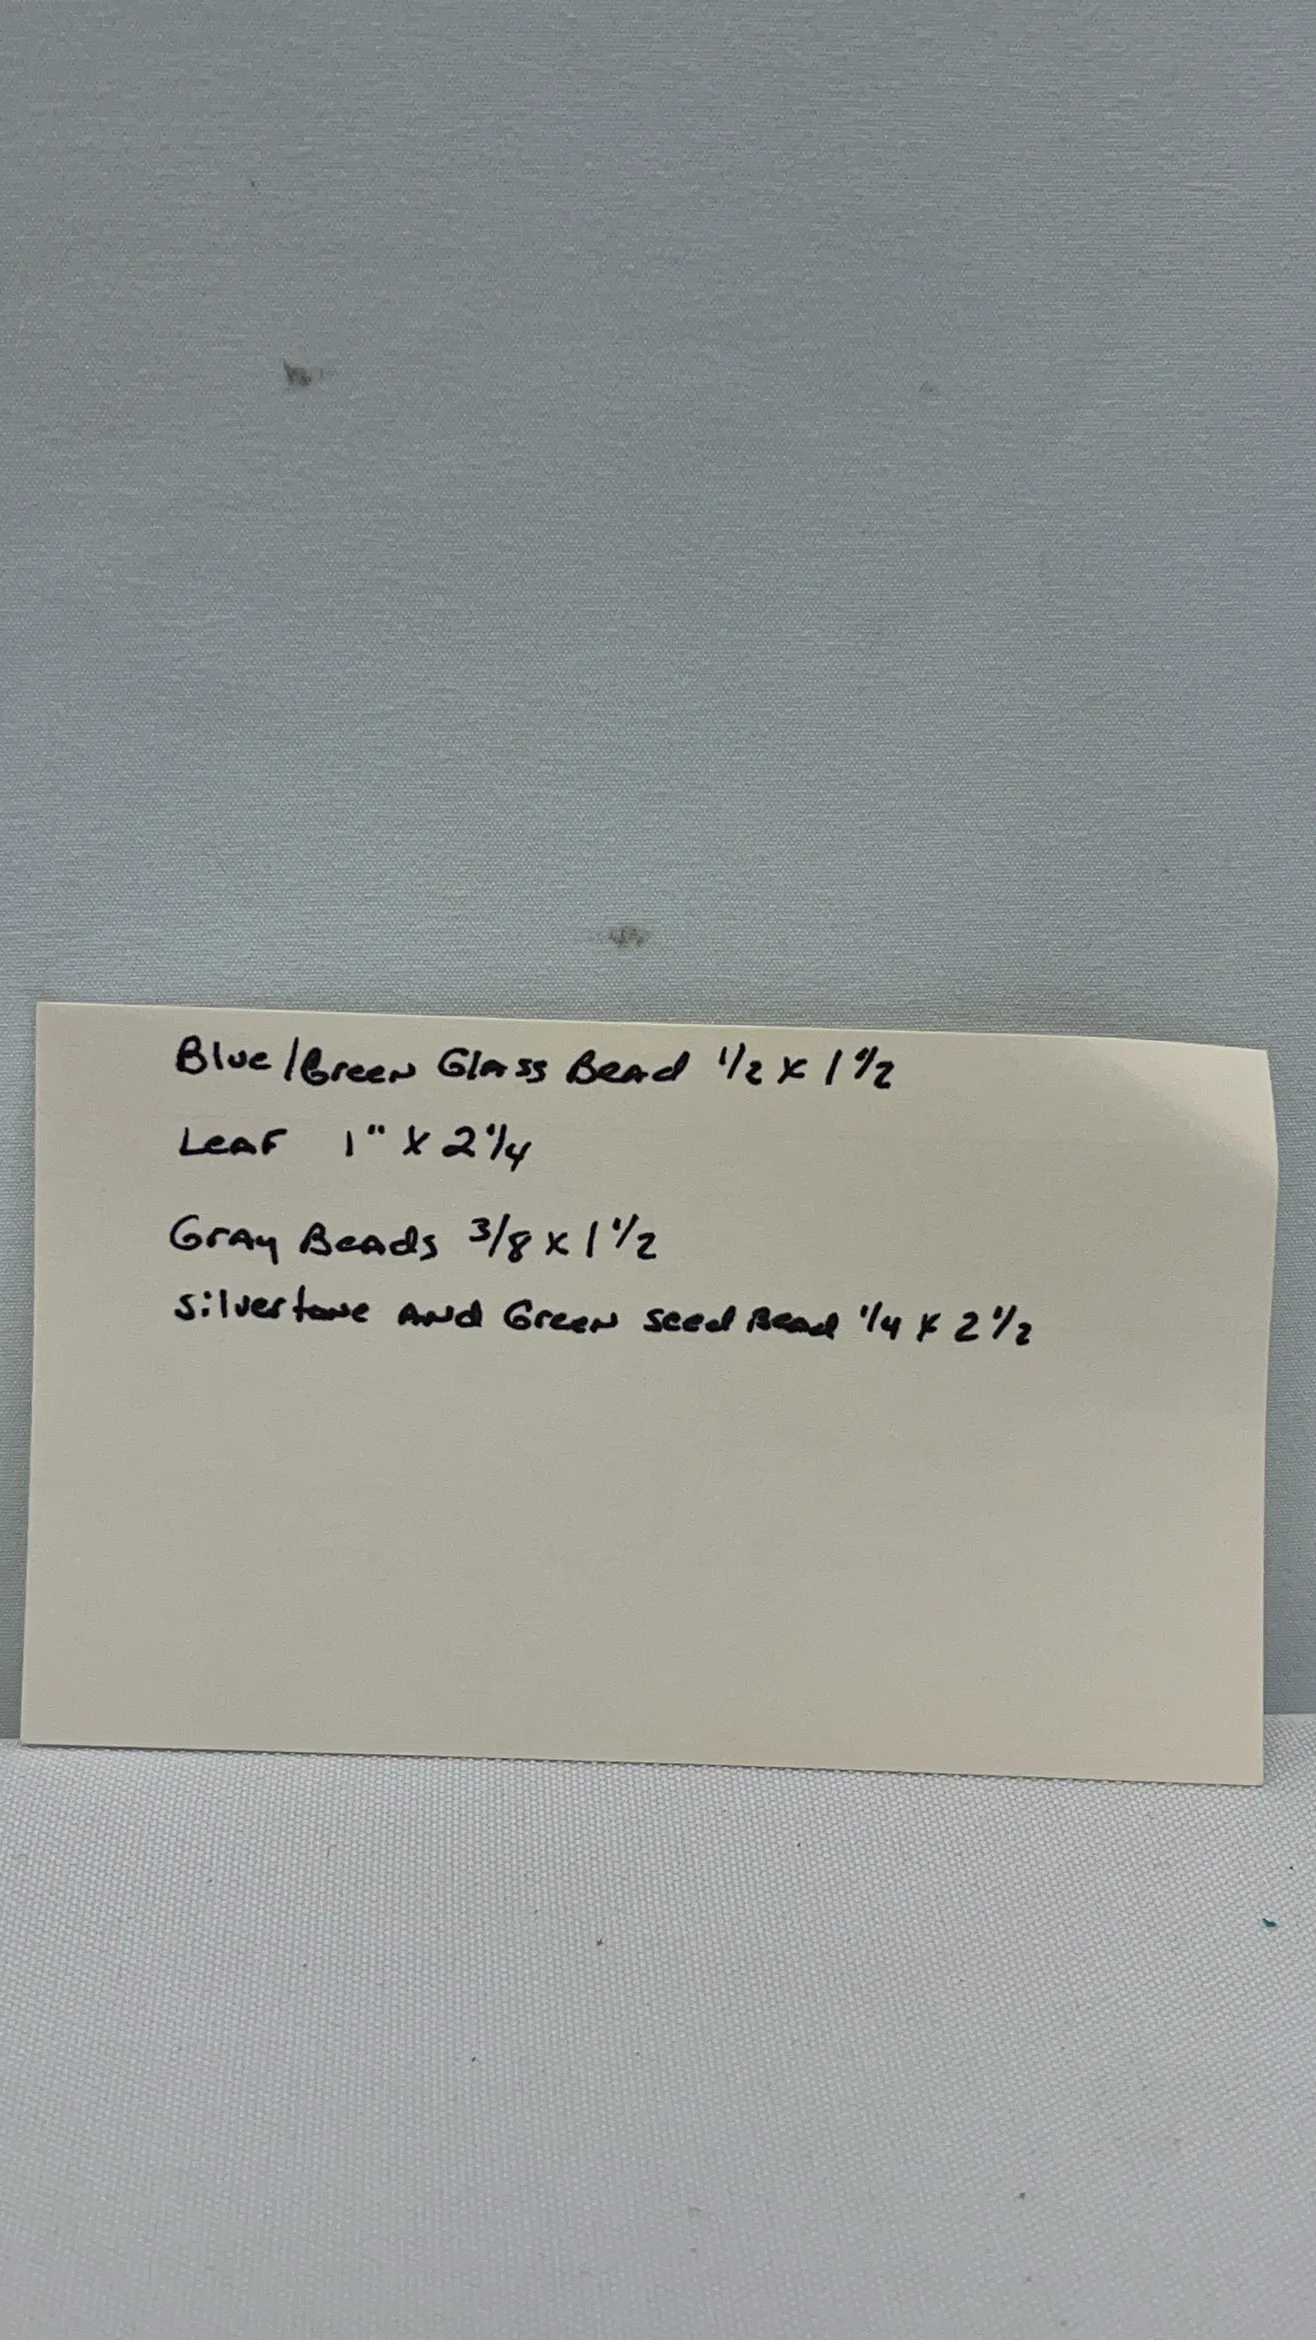 Blue/Green Glass Bead 1/2 x 1 1/2
Leaf 1" x 2 1/4
Gray Beads 3/8 x 1 1/2
Silvertone and Green seed Bead 1/4 x 2 1/2